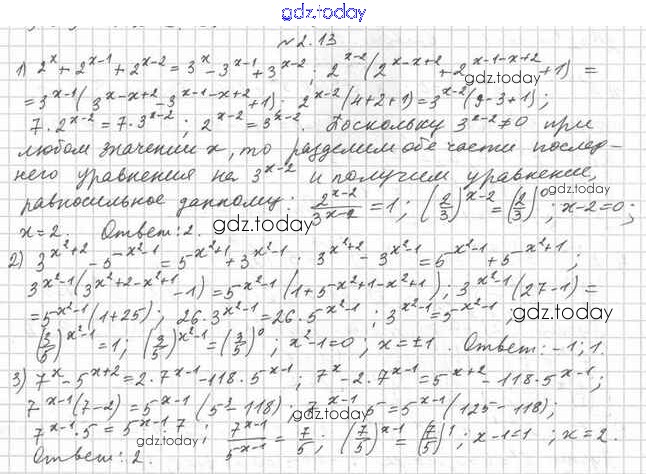 gdz.today
№2.13
1) 2^x + 2^{x-1} + 2^{x-2} = 3^x - 3^{x-1} + 3^{x-2}; 2^{x-2}(2^{x-x+2} + 2^{x-1-x+2} + 1) =
gdz.today
= 3^{x-1}(3^{x-x+2} - 3^{x-1-x+2} + 1); 2^{x-2}(4+2+1) = 3^{x-2}(9-3+1);
7·2^{x-2} = 7·3^{x-2}; 2^{x-2} = 3^{x-2}. Поскольку 3^{x-2} ≠ 0 при
любом значении x, то разделим обе части послед-
него уравнения на 3^{x-2} и получим уравнение,
gdz.today
равносильное данному: 2^{x-2}/3^{x-2} = 1; (2/3)^{x-2} = (2/3)^0; x-2=0;
x=2. Ответ: 2.
gdz.today
2) 3^{x^2+2} - 5^{x^2-1} = 5^{x^2+1} + 3^{x^2-1}; 3^{x^2+2} - 3^{x^2-1} = 5^{x^2-1} + 5^{x^2+1};
3^{x^2-1}(3^{x^2+2-x^2+1} - 1) = 5^{x^2-1}(1 + 5^{x^2+1-x^2+1}); 3^{x^2-1}(27-1) =
= 5^{x^2-1}(1+25); 26·3^{x^2-1} = 26·5^{x^2-1}; 3^{x^2-1} = 5^{x^2-1};
gdz.today
(3/5)^{x^2-1} = 1; (3/5)^{x^2-1} = (3/5)^0; x^2-1=0; x=±1. Ответ: -1; 1.
3) 7^x - 5^{x+2} = 2·7^{x-1} - 118·5^{x-1}; 7^x - 2·7^{x-1} = 5^{x+2} - 118·5^{x-1};
gdz.today
7^{x-1}(7-2) = 5^{x-1}(5^3-118); 7^{x-1}·5 = 5^{x-1}(125-118);
gdz.today
7^{x-1}·5 = 5^{x-1}·7; 7^{x-1}/5^{x-1} = 7/5; (7/5)^{x-1} = (7/5)^1; x-1=1; x=2.
gdz.today
Ответ: 2.
gdz.today